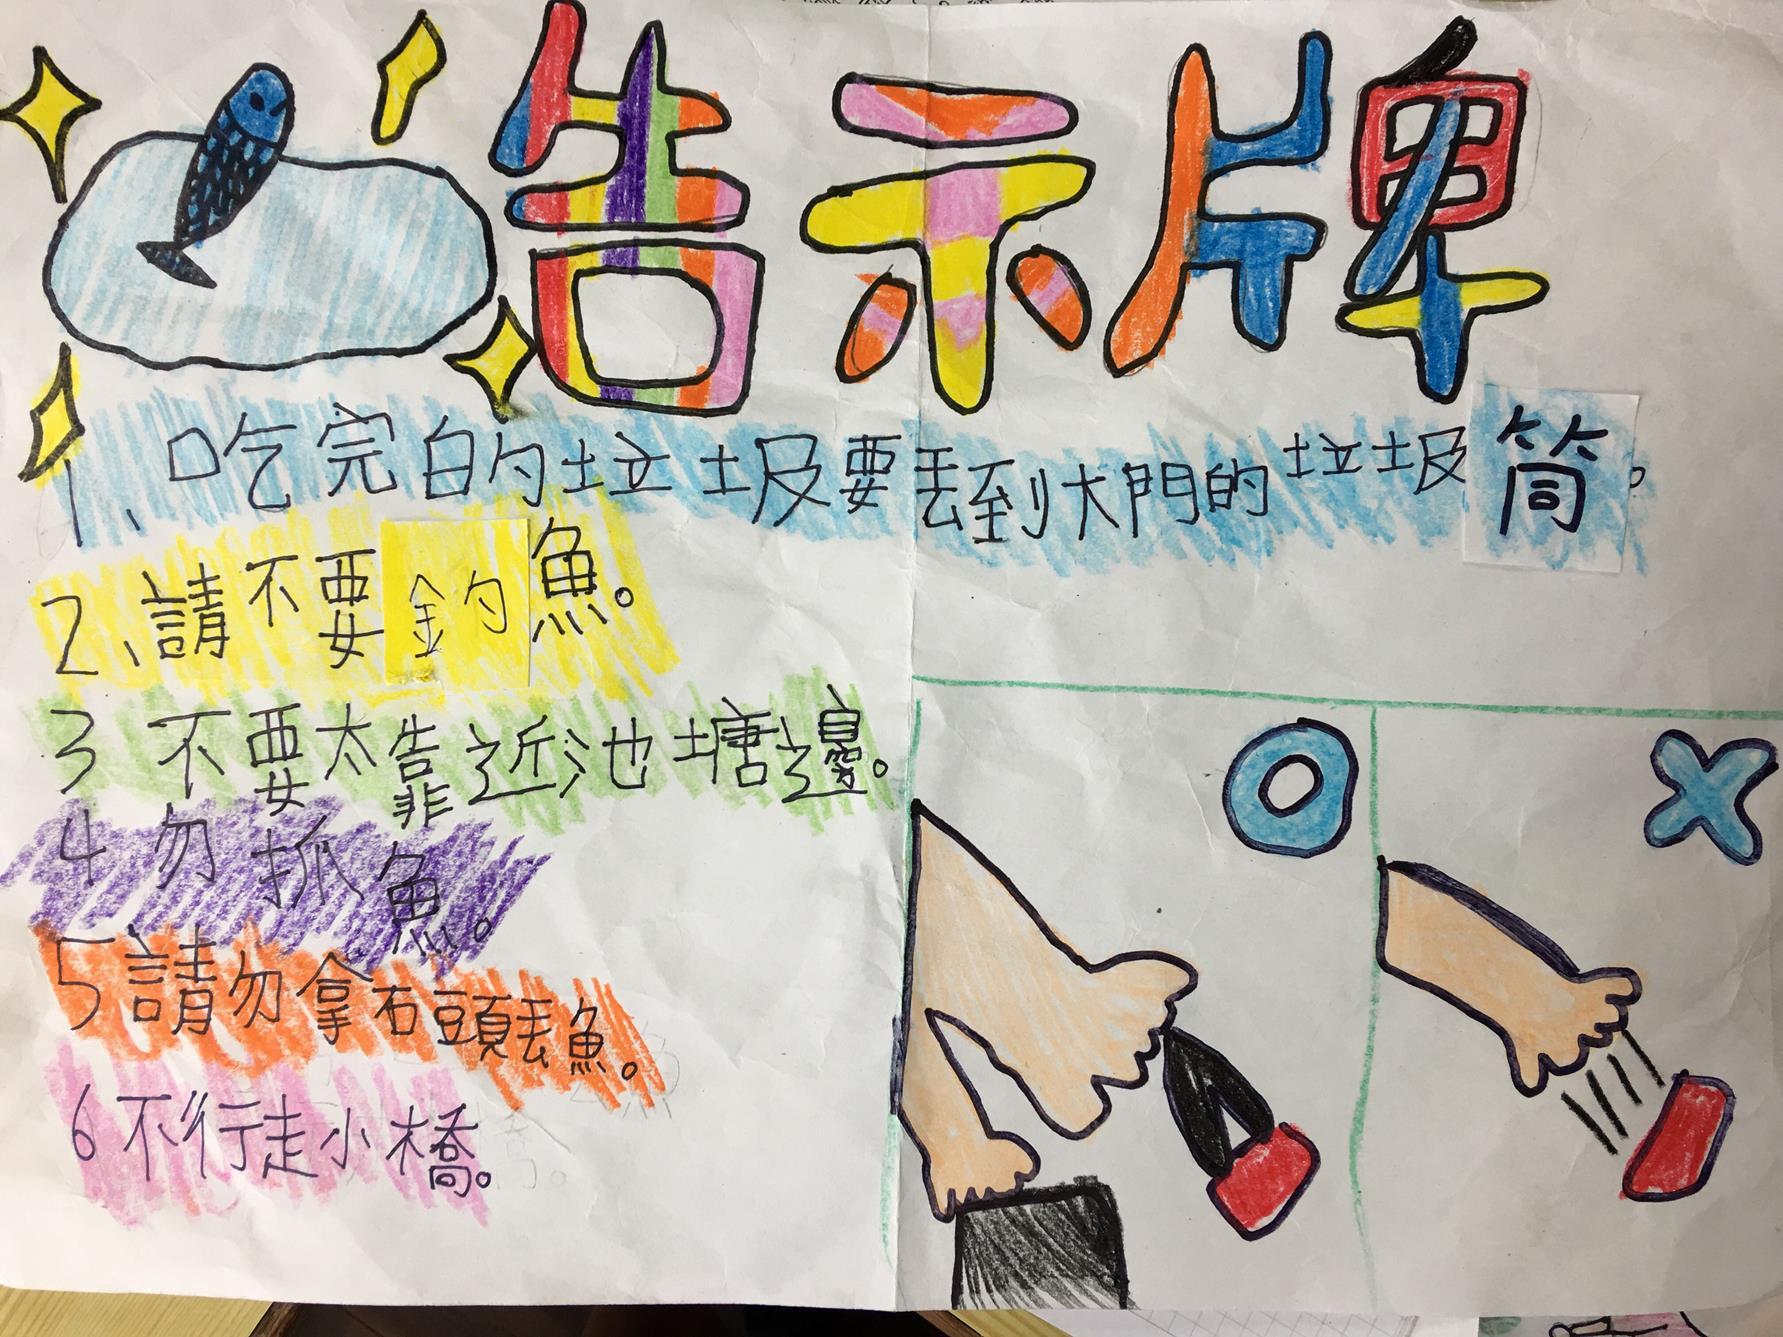 告示牌
1、吃完的垃圾要丟到大門的垃圾筒。
2、請不要釣魚。
3 不要太靠近池塘邊。
4 勿抓魚。
5 請勿拿石頭丟魚。
6 不行走小橋。